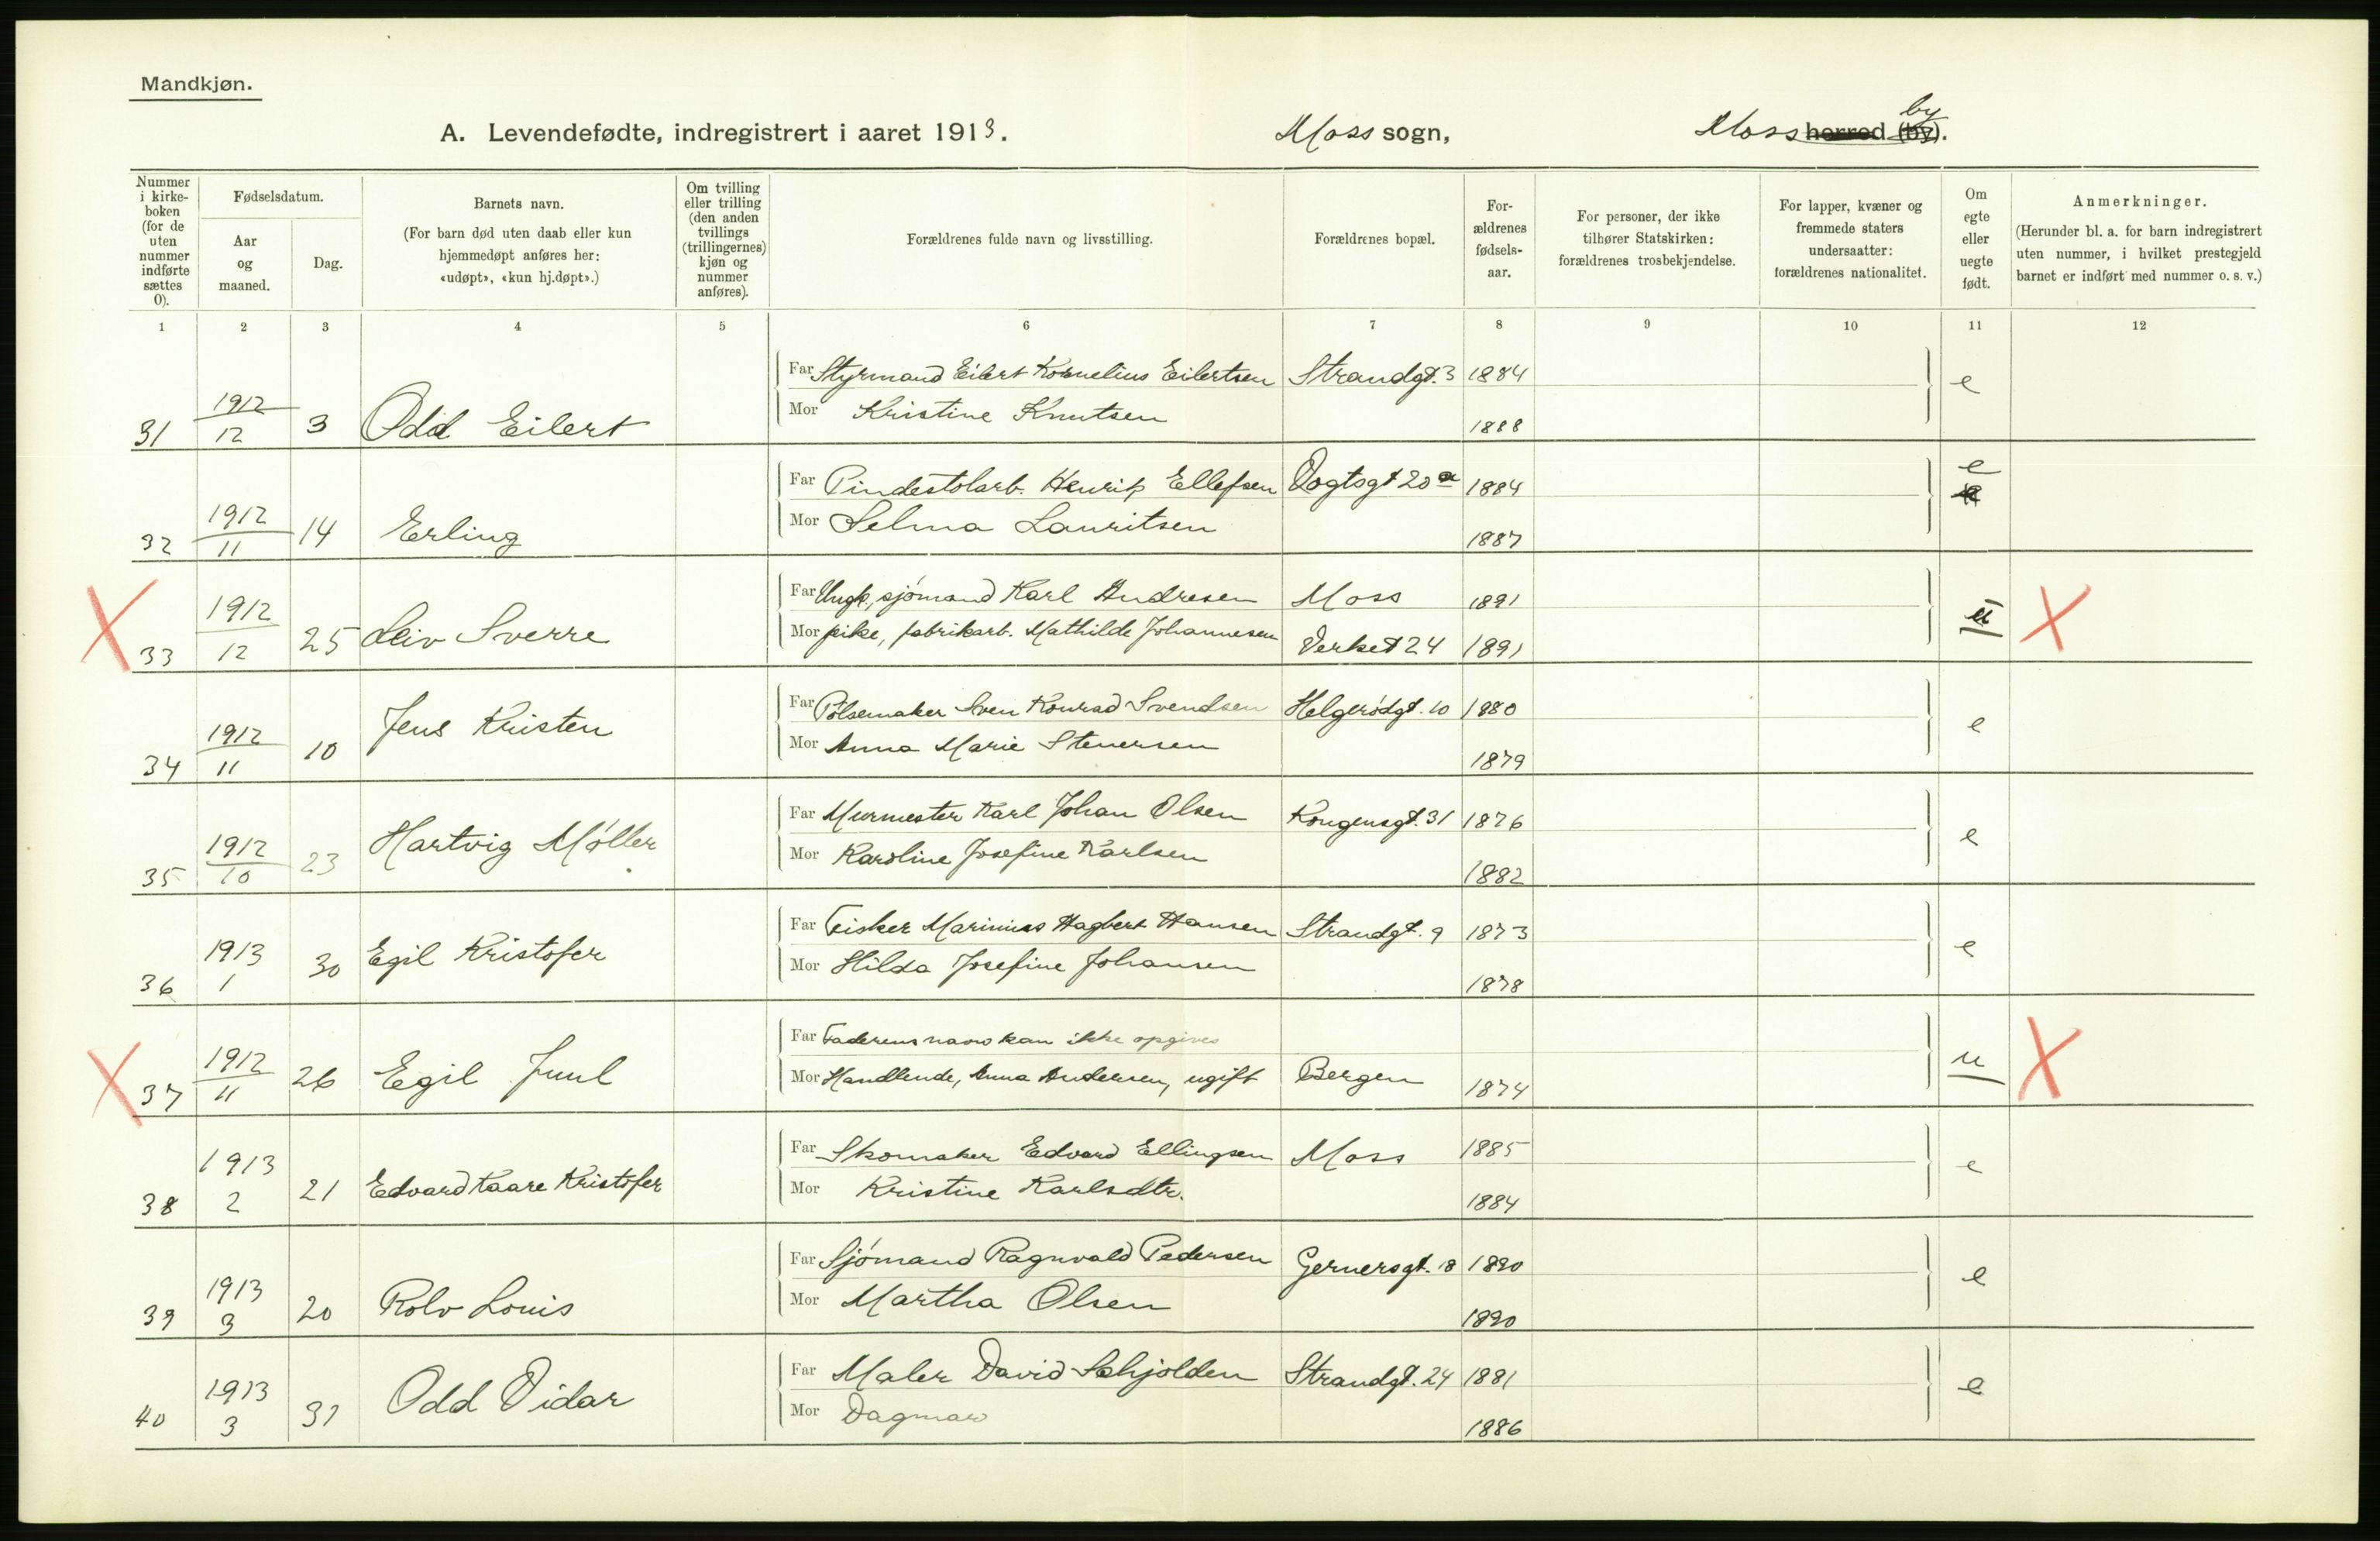 Mandkjøn.
A. Levendefødte, indregistrert i aaret 1913. Moss sogn, Moss herred (by). by
Nummer i kirkeboken (for de uten nummer indførte sættes 0).
Fødselsdatum.
Aar og maaned.
Dag.
Barnets navn.
(For barn død uten daab eller kun hjemmedøpt anføres her: «udøpt», «kun hj.døpt».)
Om tvilling eller trilling (den anden tvillings (trillingernes) kjøn og nummer anføres).
Forældrenes fulde navn og livsstilling.
Forældrenes bopæl.
Forældrenes fødselsaar.
For personer, der ikke tilhører Statskirken: forældrenes trosbekjendelse.
For lapper, kvæner og fremmede staters undersaatter: forældrenes nationalitet.
Om egte eller uegte født.
Anmerkninger.
(Herunder bl. a. for barn indregistrert uten nummer, i hvilket prestegjeld barnet er indført med nummer o. s. v.)
1 2 3 4 5 6 7 8 9 10 11 12
31 1912 12 3 Odd Eilert
Far Styrmand Eilert Kornelius Eilertsen Strandgt. 3 1884 e
Mor Kristine Knutsen 1888
32 1912 11 14 Erling
Far Pindestolarb. Henrik Ellefsen Vogtsgt 20 a 1884 e
Mor Selma Lauritsen 1887
33 1912 12 25 Leiv Sverre
Far Ungk., sjømand Karl Andresen Moss 1891 u
Mor pike, fabrikarb. Mathilde Johannesen Verket 24 1891
34 1912 11 10 Jens Kristen
Far Pølsemaker Sven Konrad Svendsen Helgerødgt. 10 1880 e
Mor Anna Marie Stenersen 1879
35 1912 10 23 Hartvig Møller
Far Murmester Karl Johan Olsen Kongensgt. 31 1876 e
Mor Karoline Josefine Karlsen 1882
36 1913 1 30 Egil Kristofer
Far Fisker Marinius Hagbert Hansen Strandgt. 9 1873 e
Mor Hilda Josefine Johansen 1878
37 1912 11 26 Egil Juul
Far Faderens navn kan ikke opgives u
Mor Handlende, Anna Andersen, ugift Bergen 1874
38 1913 2 21 Edvard Kaare Kristofer
Far Skomaker Edvard Ellingsen Moss 1885 e
Mor Kristine Karlsdtr. 1884
39 1913 3 20 Rolv Louis
Far Sjømand Ragnvald Pedersen Gernersgt. 18 1890 e
Mor Martha Olsen 1890
40 1913 3 31 Odd Vidar
Far Maler David Schjolden Strandgt. 24 1881 e
Mor Dagmar 1886